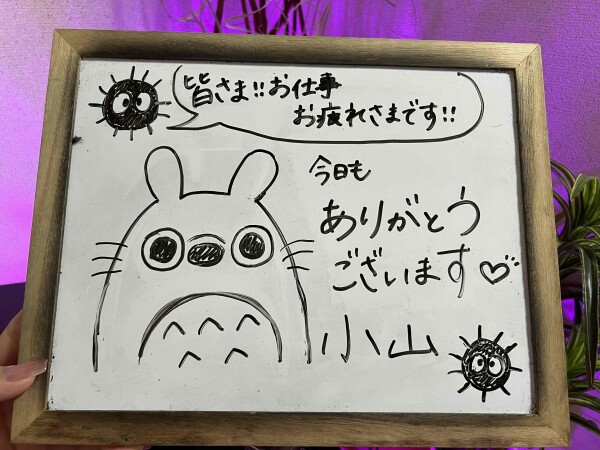 皆さま!!お仕事
お疲れさまです!!
今日も
ありがとう
ございます♡
小山